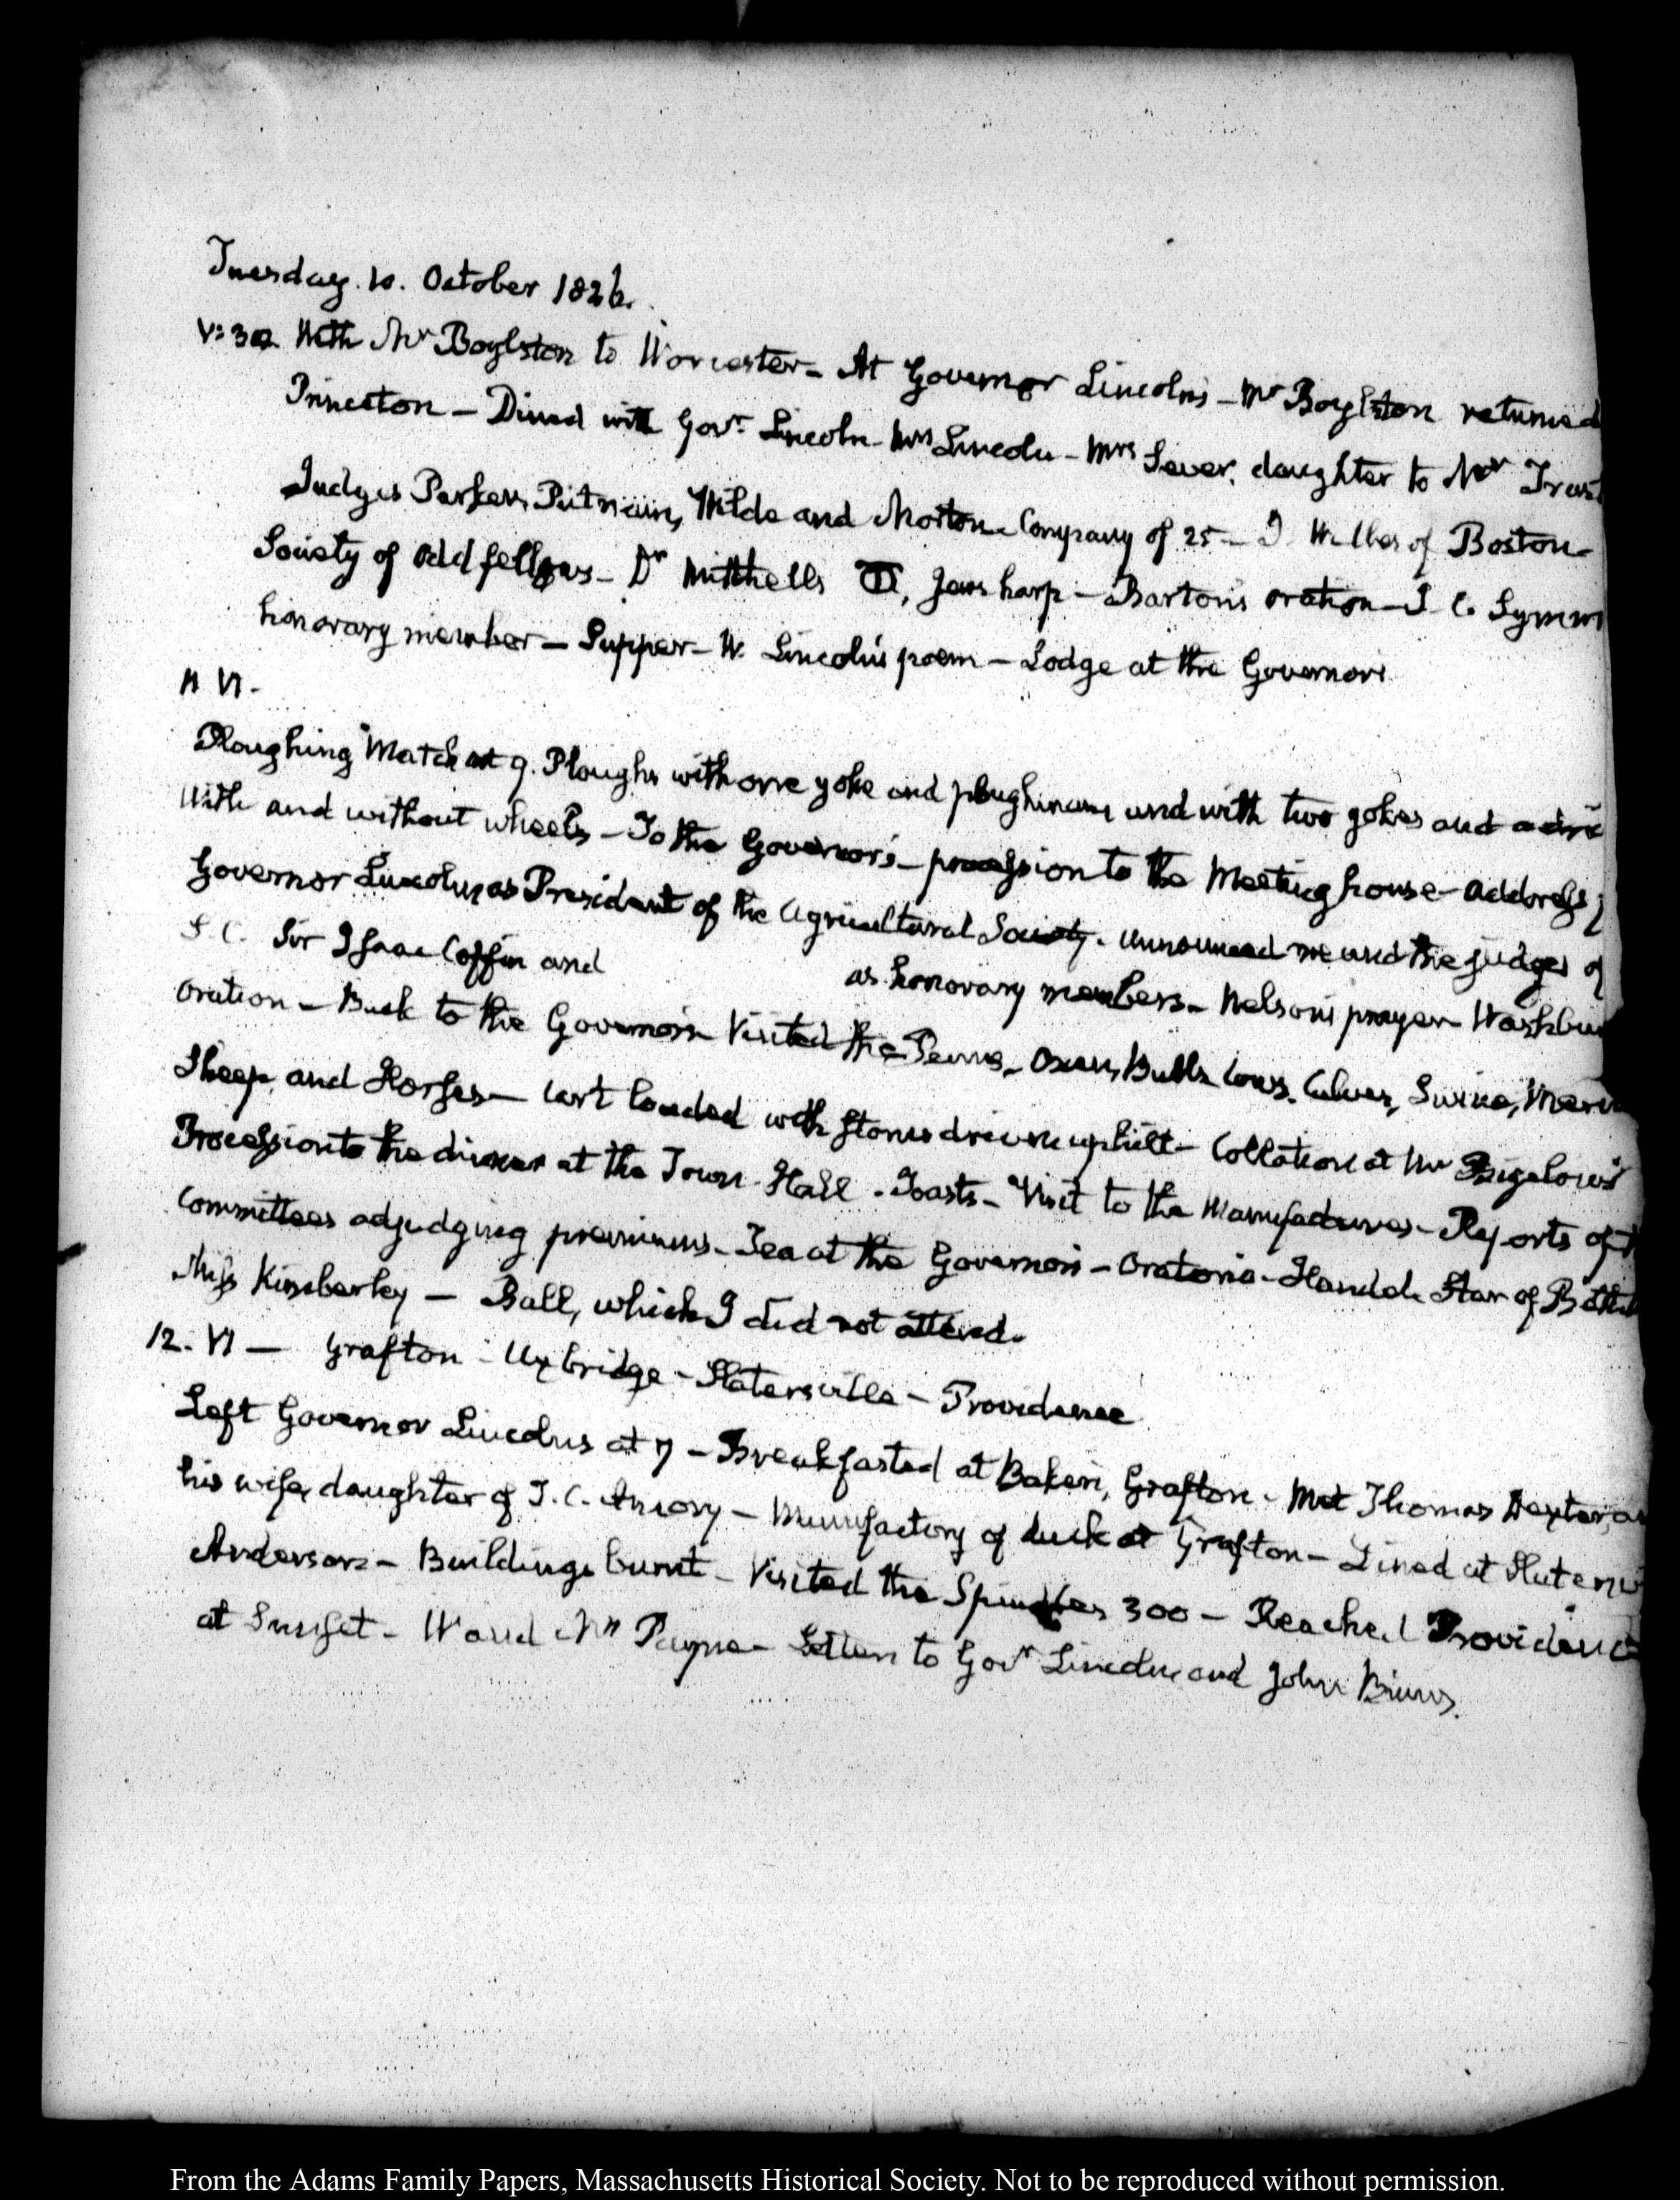 Tuesday. 10. October 1826.
V:30. With Mr Boylston to Worcester – At Governor Lincoln's – Mr Boylston returned
Princeton – Dined with Govr. Lincoln – Mrs Lincoln – Mrs Sever, daughter to Mr
Judges Parker, Putnam, Wilde and Morton – Company of 25 – of Boston –
Society of odd fellows – Dr Mitchells Jews harp – Barton's oration – J. C. Symm
honorary member – Supper – W. Lincoln's poem – Lodge at the Governors
11 VI –
Ploughing Match at 9. Ploughs with one yoke and ploughman, and with two yokes and a dri
With and without wheels – To the Governor's – procession to the Meeting house – address
Governor Lincoln, as President of the Agricultural Society. announced me and the judges of
S. C. Sir Isaac Coffin and as honorary members – Nelson's prayer – Washbu
oration – Back to the Governor's – Visited the Penns – Oxen, Bulls, Cows, Calves, Swine, Meri
Sheep, and Horses – Cart loaded with stones driven uphill – Collation at Mr Bigelow's
Procession to the dinner at the Town-Hall – Toasts – Visit to the Manufactures – Reports of
Committees adjudging premiums – Tea at the Governor's – Oratorio – Handel. Star of Bethl
Miss Kimberley – Ball, which I did not attend.
12. VI – Grafton – Uxbridge – Slatersville – Providence
Left Governor Lincolns at 7 – Breakfasted at Bakers, Grafton – Met Thomas Dexter, an
his wife, daughter of J. C. Amory – Manufactory of duck at Grafton – Dined at Slatersvi
Anderson – Buildings burnt – Visited the Spindles 300 – Reached Providence
at Sunset – W and Mrs Payne – Letters to Govr Lincoln and John Binns.
From the Adams Family Papers, Massachusetts Historical Society. Not to be reproduced without permission.